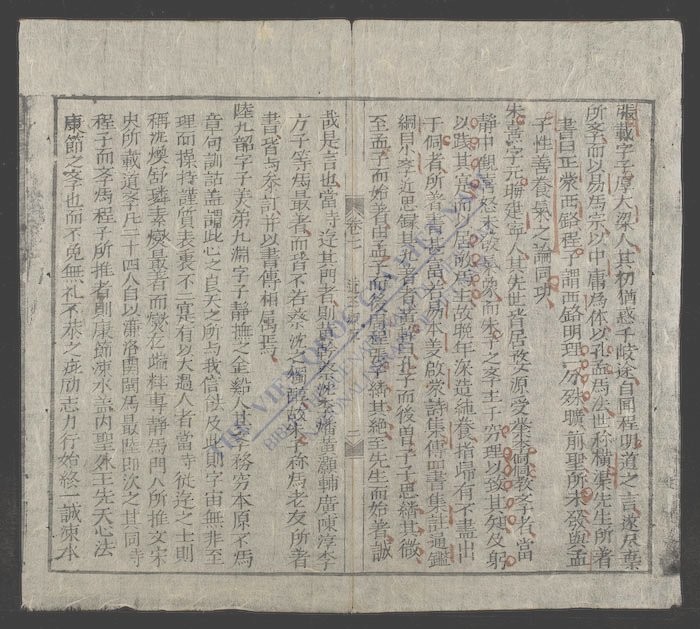 張載字子厚大梁人其初猶惑于岐途自聞程明道之言遂尽棄
所斈而以易為宗以中庸為体以孔孟為法世称橫渠先生所著
書曰正蒙西銘程子謂西銘明理一分殊擴前聖所未發與孟
子性善養氣之論同功
朱熹字元晦建寧人其先世皆居婺源受斈李侗教子者當
静中觀喜怒未發氣象而朱子之斈主于穷理以致其知反躬
以踐其寔而一居敬為主故晚年深造緬養指歸有不盡出
于侗者所著書甚富若易本义啟蒙詩集傳四書集註通鑑
綱目小斈近思録其尤著者黄幹曰孔子而後曾子子思繼其微
至孟子而始著由孟子而後周程張子継其絶至先生而始著誠
卷七
二
哉是言也當時逰其門者則黄幹蔡沈李燔黄灝輔廣陳淳李
方子等為最著而皆不若蔡沈之獨醇故朱子称為老友所著
書皆与參訂并以書傳相属焉
陸九韶字子美弟九淵字子静撫之金谿人其斈務穷本原不為
章句訓詁盖謂此心之良天之所与我信能及此則宇宙無非至
理而操持謹質表裏不二寔有以大過人者當時從逰之士則
称沈煥舒璘袁燮最著而燮在端粹專静為門人所推文宋
史所載道斈凡二十四人自以濂洛関閩為最陸即次之其同時
程子而斈為程子所推者則康節涑水盖内聖外王先天心法
康節之斈也而不免無礼不恭之疵励志力行始終一誠涑水
VIỆN QUỐC GIA VIỆT NAM
NATIONAL